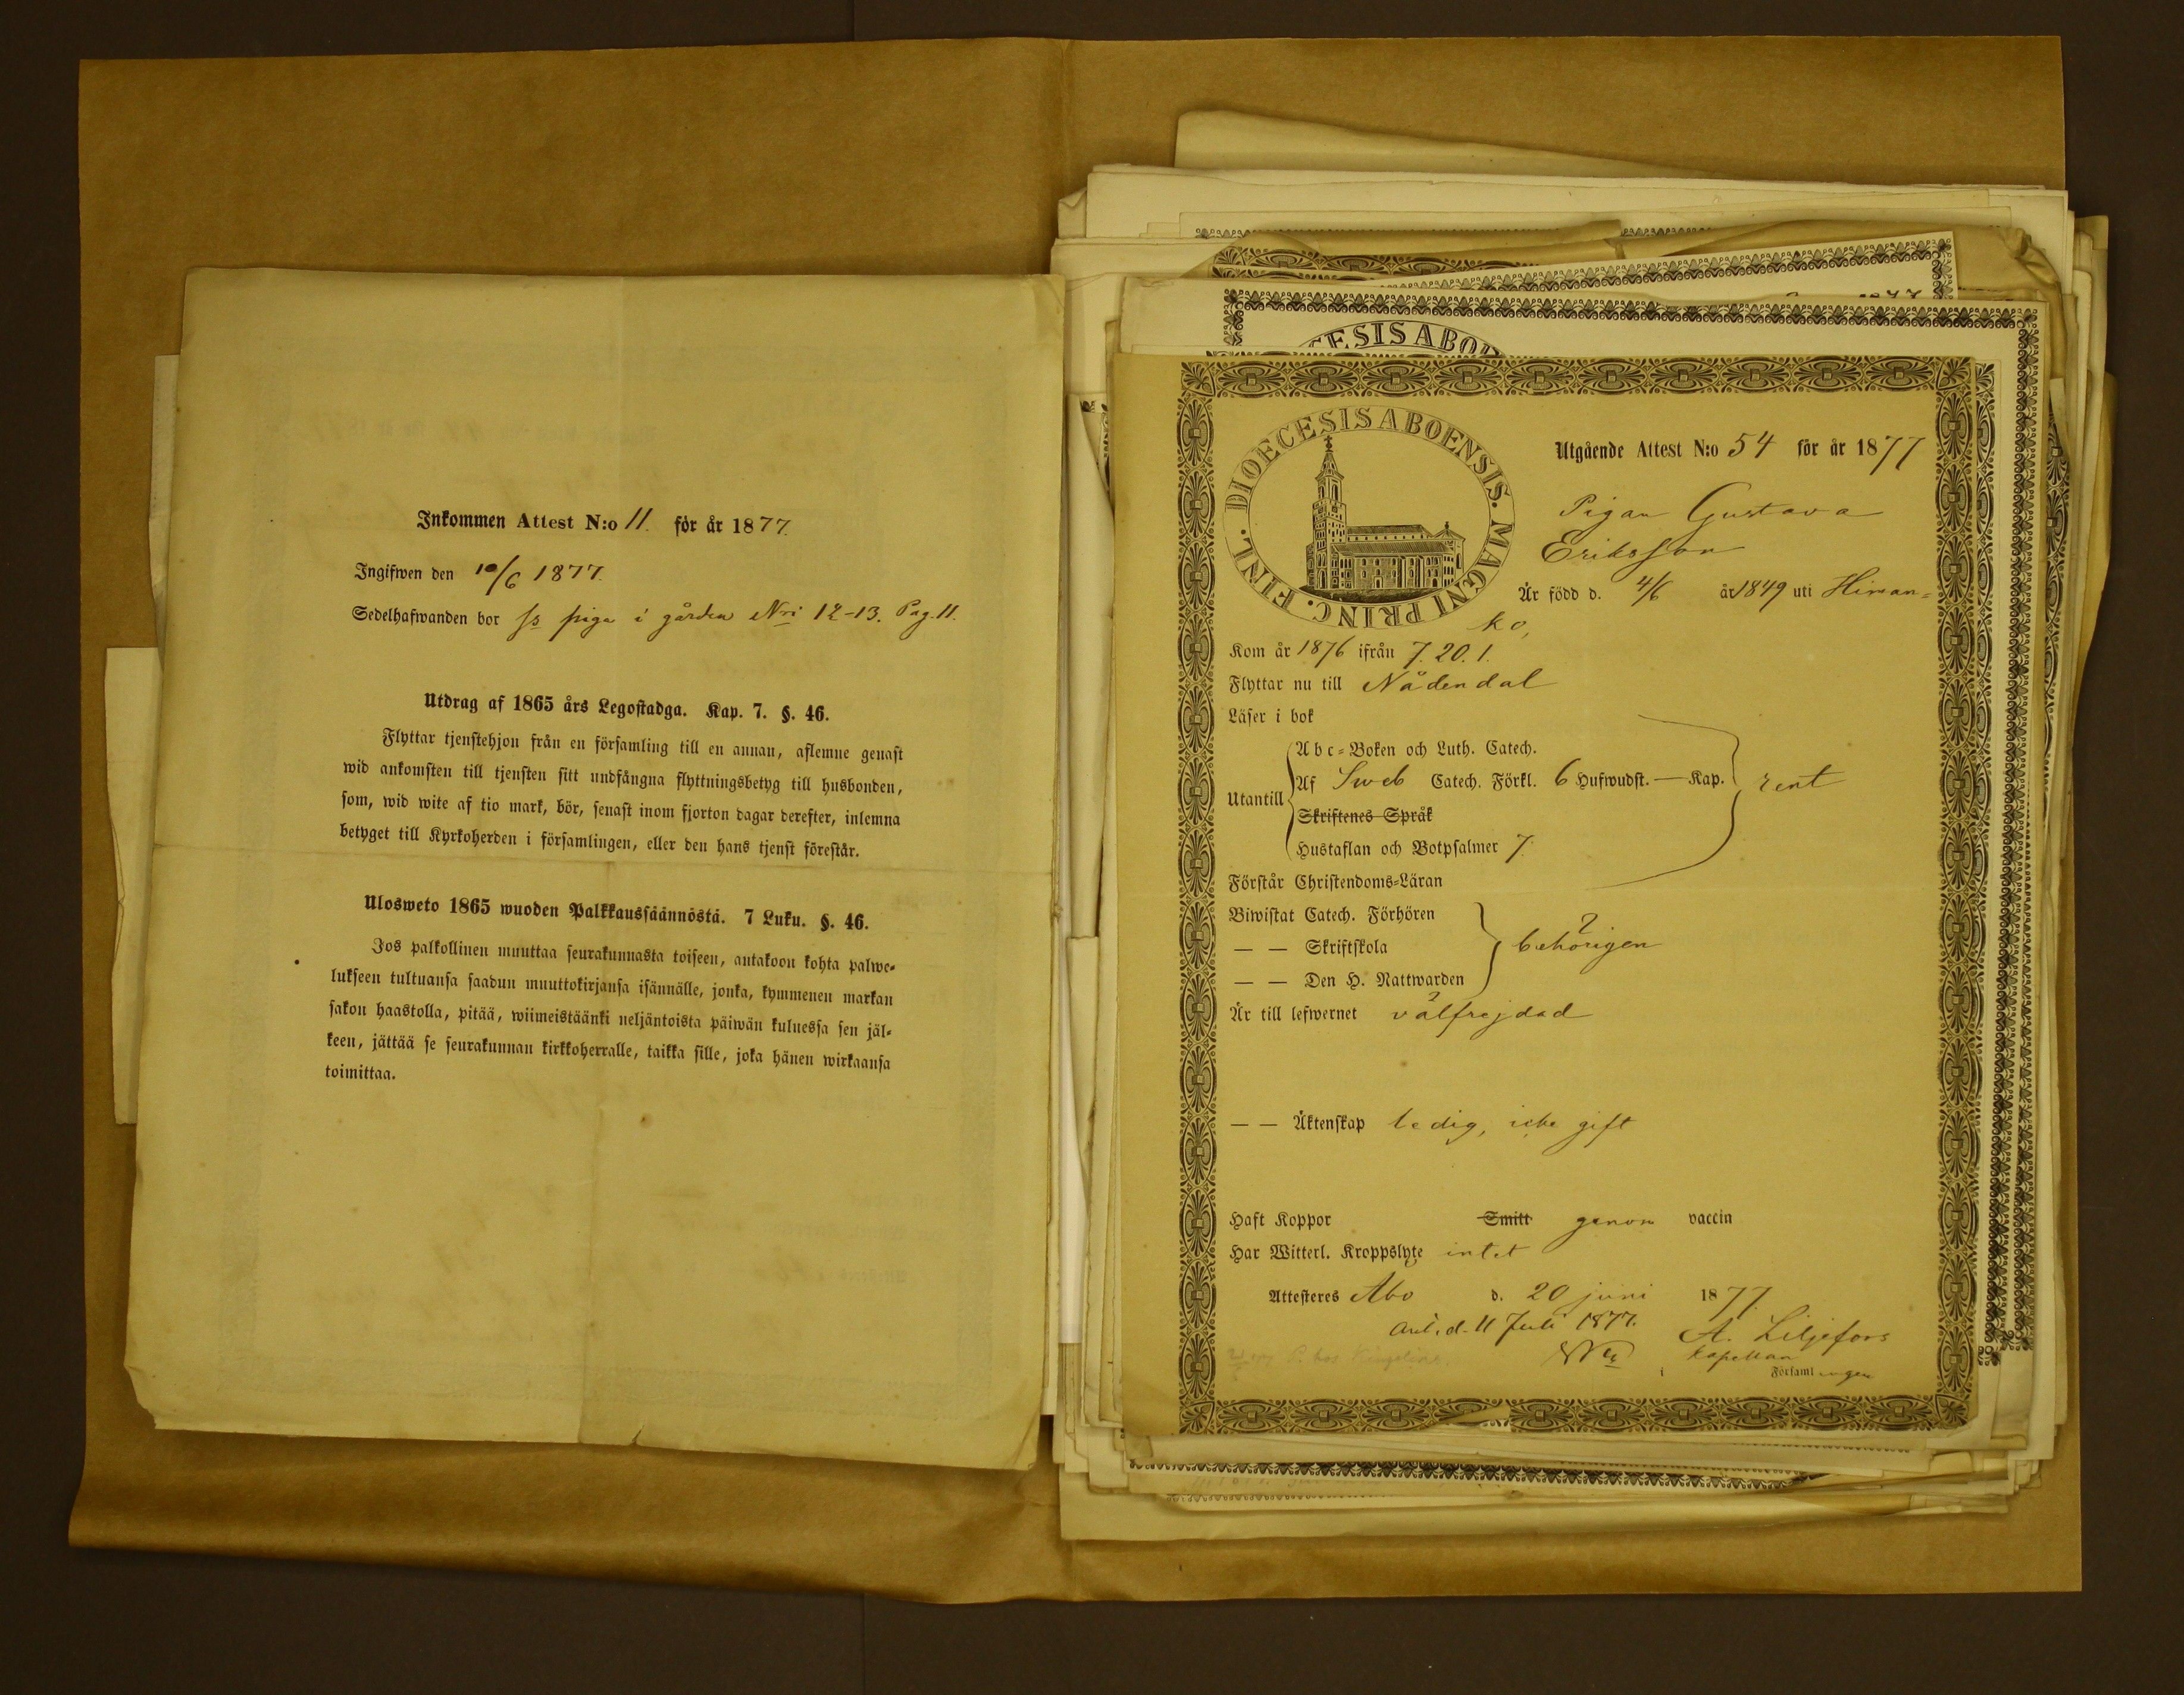 Inkommen Attest N:o 11. för år 1877.
Ingifwen den 10/6 1877.
Sedelhafwanden bor ss piga i gården Nri 12-13. Pag. 11.
Utdrag af 1865 års Legostadga. Kap. 7. §. 46.
Flyttar tjenstehjon från en församling till en annan, aflemne genast
wid ankomsten till tjensten sitt undfångna flyttningsbetyg till husbonden,
som, wid wite af tio mark, bör, senast inom fjorton dagar derefter, inlemna
betyget till Kyrkoherden i församlingen, eller den hans tjenst förestår.
Ulosweto 1865 wuoden Palkkaussäännöstä. 7 Luku. §. 46.
Jos palkollinen muuttaa seurakunnasta toiseen, antakoon kohta palwe-
lukseen tultuansa saadun muuttokirjansa isännälle, jonka, kymmenen markan
sakon haastolla, pitää, wiimeistäänki neljäntoista päiwän kuluessa sen jäl-
keen, jättää se seurakunnan kirkkoherralle, taikka sille, joka hänen wirkaansa
toimittaa.
CESIS ABOE
1877
DIOECESIS ABOENSIS. MAGNI PRINC. FINL.
Utgående Attest N:o 54 för år 1877
Pigan Gustava
Eriksson
Är född d. 4/6 år 1849 uti Himan=
ko,
Kom år 1876 ifrån 7. 20. 1.
Flyttar nu till Nådendal
Läser i bok
Utantill
Abc-Boken och Luth. Catech.
Af Sweb Catech. Förkl. 6 Hufwudst. — Kap.
rent
Skriftenes Språk
Hustaflan och Botpsalmer 7.
Förstår Christendoms-Läran
Biwistat Catech. Förhören
— — Skriftskola
behörigen
— — Den H. Nattwarden
Är till lefwernet välfrejdad
— — Äktenskap ledig, icke gift
Haft Koppor Smitt genom vaccin
Har Witterl. Kroppslyte intet
Attesteres Åbo d. 20 juni 1877.
Anl. d. 11 Juli 1877.
A. Liljefors
kapellan
i Församlingen